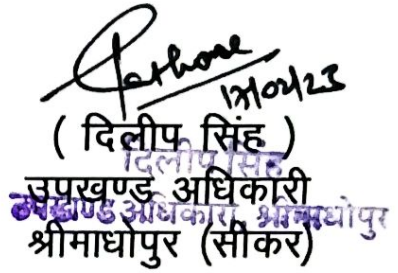 Rathore
17/02/23
( दिलीप सिंह )
दिलीप सिंह
उपखण्ड अधिकारी
उपखण्ड अधिकारी, श्रीमाधोपुर
श्रीमाधोपुर (सीकर)